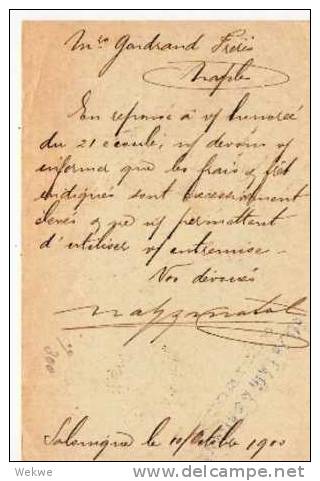 Mrs Gondrand Frères
Naples
En reponse à v/ honorée
du 21 écoulé, n/ devons v/
informer que les frais & frêt
indiqués sont excessivement
élevés & que n/ permettent
d'utiliser v/ entremise.
Vos dévoués
300
Salonique le 10 Octobre 1900
Wekwe
www.delcampe.net